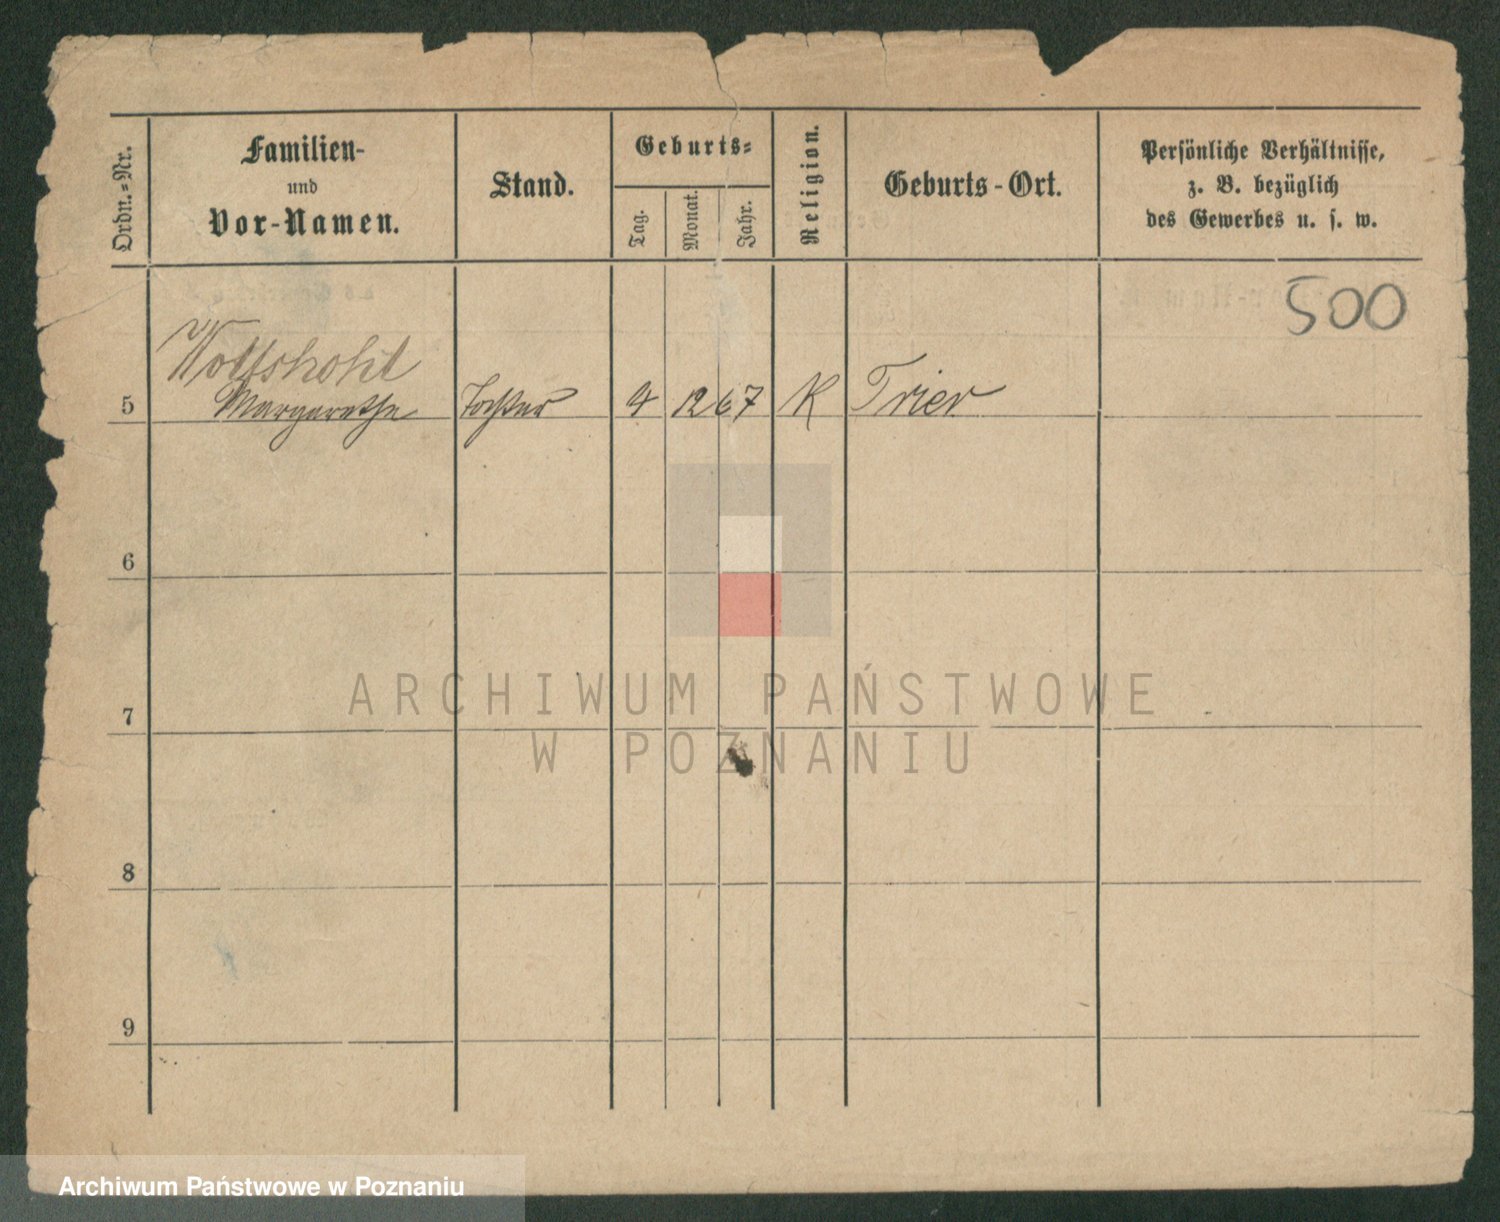 Ordn.-Nr.
Familien-
und
Vor-Namen.
Stand.
Geburts-
Tag.
Monat.
Jahr.
Religion.
Geburts-Ort.
Persönliche Verhältnisse,
z. B. bezüglich
des Gewerbes u. s. w.
500
Wolfskohl
5 Margarethe Tochter 4 12 67 K Trier
6
ARCHIWUM PAŃSTWOWE
7
W POZNANIU
8
9
Archiwum Państwowe w Poznaniu